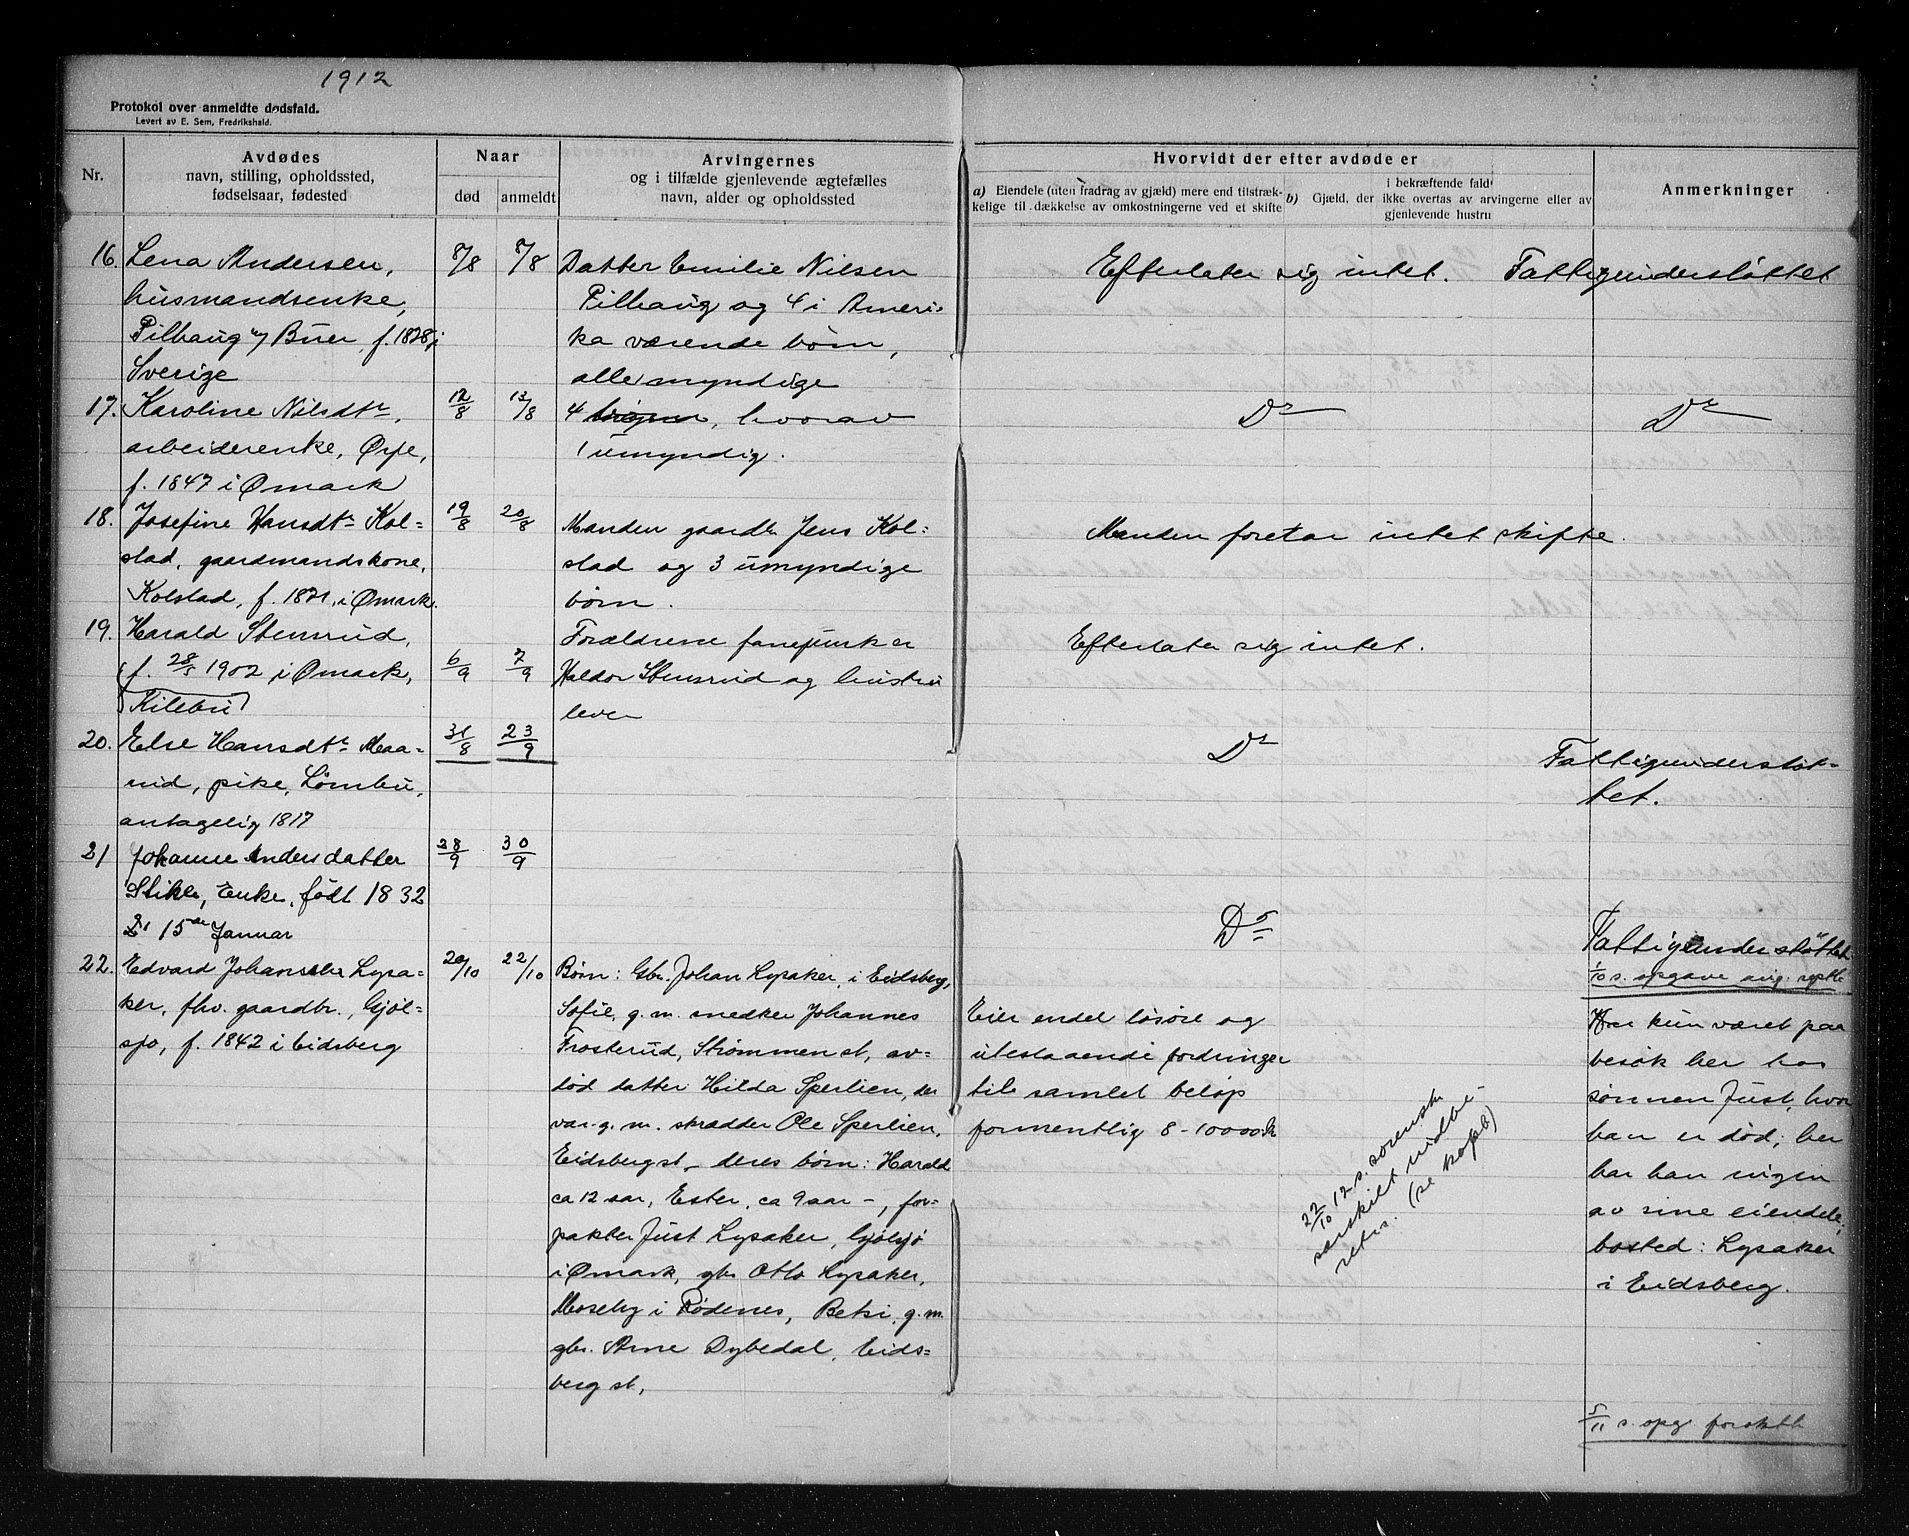 1912
Protokol over anmeldte dødsfald.
Levert av E. Sem, Fredrikshald.
Nr.
Avdødes
navn, stilling, opholdssted,
fødselsaar, fødested
Naar
død
anmeldt
Arvingernes
og i tilfælde gjenlevende ægtefælles
navn, alder og opholdssted
Hvorvidt der efter avdøde er
a) Eiendele (uten fradrag av gjæld) mere end tilstræk-
kelige til dækkelse av omkostningerne ved et skifte
b) Gjæld, der i bekræftende fald
ikke overtas av arvingerne eller av
gjenlevende hustru
Anmerkninger
16. Lena Andersen,
husmandsenke,
Pilhaug u/ Buer, f. 1828 i
Sverige
8/8
8/8
Datter Emilie Nilsen
Pilhaug og 4 i Ameri-
ka værende børn,
alle myndige
Efterlater sig intet.
Fattigunderstøttet
17. Karoline Nilsdtr,
arbeiderenke, Ørje,
f. 1847 i Ømark
12/8
13/8
4, hvorav
1 umyndig.
Do
Do
18. Josefine Hansdtr Kol-
stad, gaardmandskone,
Kolstad, f. 1871, i Ømark.
19/8
20/8
Manden gaardbr Jens Kol-
stad og 3 umyndige
børn.
Manden foretar intet skifte.
19. Harald Stensrud,
f. 28/5 1902 i Ømark,
(Kilebu)
6/9
7/9
Forældrene
Haldor Stensrud og hustru
lever
Efterlater sig intet.
20. Else Hansdtr Maa-
rud, pike, Lømbu,
antagelig 1817
31/8
23/9
Do
Fattigunderstøt-
tet.
21 Johanne Andersdatter
Stikle, Enke, født 1832
15de Januar
28/9
30/9
Do
Fattigunderstøttet
1/10 s. opgave ang. septbr
22. Edvard Johansen Lysa-
ker, fhv. gaardbr., Gjøl-
sjø, f. 1842 i Eidsberg
20/10
22/10
Børn: Gbr. Johan Lysaker, i Eidsberg,
Sofie, g. m. snedker Johannes
Frosterud, Strømmen st, av-
død datter Hilda Sperlien, der
var g. m. skrædder Ole Sperlien,
Eidsberg st, deres børn: Harald
ca 12 aar, Ester, ca 9 aar -, for-
pakter Just Lysaker, Gjølsjø
i Ømark, gbr Otto Lysaker,
Moseby i Rødenes, Betsi, g. m.
gbr. Arne Dybedal, Eids-
berg st,
Eier endel løsøre og
utestaaende fordringer
til samlet beløp
formentlig 8-10000 kr
22/10 12 s. sorenskr
særskilt indbe-
retn. (se kopb)
Har kun været paa
besøk her hos
sønnen Just, hvor
han er død; her
har han ingen
av sine eiendele,
bosted: Lysaker
i Eidsberg.
5/11 s. opg. for oktbr